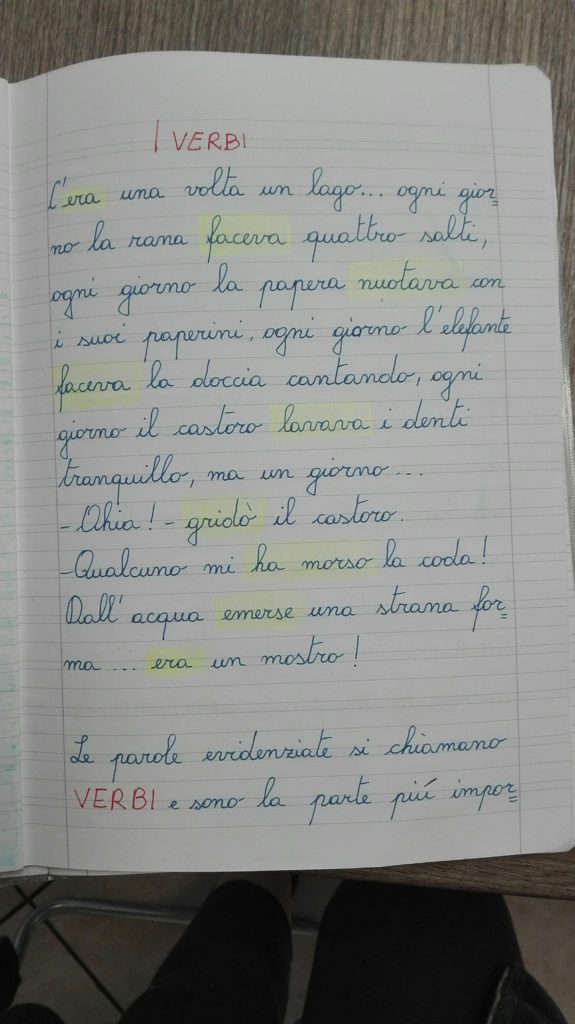 I VERBI
C'era una volta un lago... ogni gior=
no la rana faceva quattro salti,
ogni giorno la papera nuotava con
i suoi paperini, ogni giorno l'elefante
faceva la doccia cantando, ogni
giorno il castoro lavava i denti
tranquillo, ma un giorno...
-Ohia! - gridò il castoro.
-Qualcuno mi ha morso la coda!
Dall'acqua emerse una strana for=
ma ... era un mostro!
Le parole evidenziate si chiamano
VERBI e sono la parte piú impor=